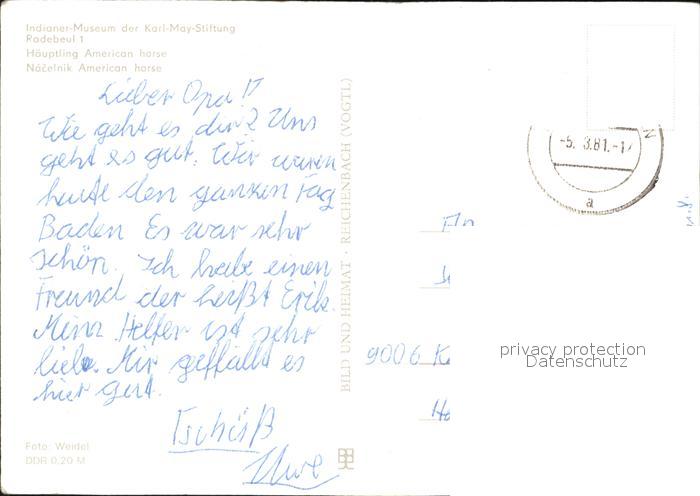 Indianer-Museum der Karl-May-Stiftung
Radebeul 1
Häuptling American horse
Náčelnik American horse
Lieber Opa!!
Wie geht es dir? Uns
geht es gut. Wir waren
heute den ganzen Tag
Baden Es war sehr
schön. Ich habe einen
Freund der heißt Erik.
Mein Helfer ist sehr
lieb. Mir geffällt es
hier gut.
Tschüß
Uwe
Foto: Weidel
DDR 0,20 M
BILD UND HEIMAT · REICHENBACH (VOGTL)
-5. 8.81.-17
a
9006 K
Ho
privacy protection
Datenschutz